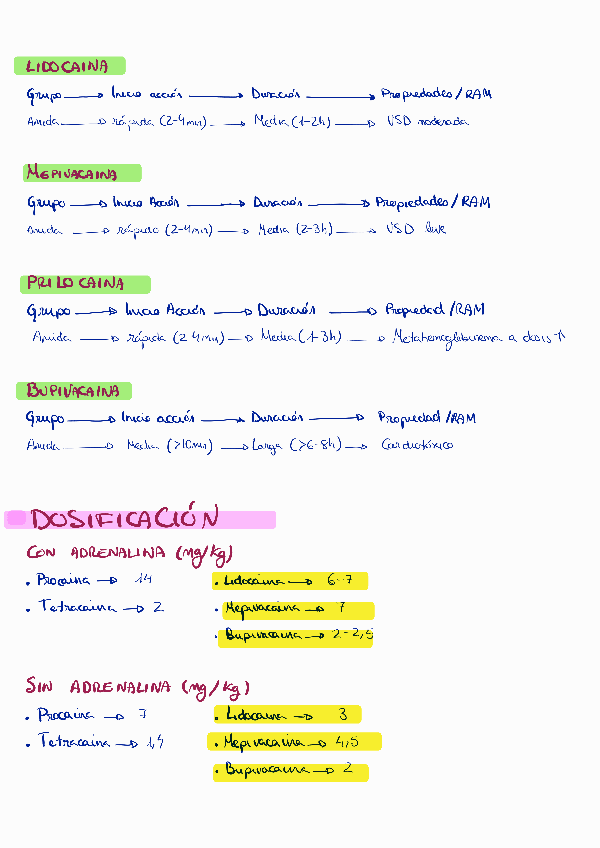 LIDOCAINA
Grupo → Inicio acción → Duración → Propiedades / RAM
Amida → rápida (2-4min) → Media (1-2h) → VSD moderada
MEPIVACAINA
Grupo → Inicio Acción → Duración → Propiedades / RAM
Amida → rápido (2-4min) → Media (2-3h) → VSD leve
PRILOCAINA
Grupo → Inicio Acción → Duración → Propiedad / RAM
Amida → rápida (2-4min) → Media (1-3h) → Metahemoglobinemia a dosis ↑
BUPIVACAINA
Grupo → Inicio acción → Duración → Propiedad / RAM
Amida → Media (>10min) → Larga (>6-8h) → Cardiotóxico
DOSIFICACIÓN
CON ADRENALINA (mg/kg)
• Procaina → 14 • Lidocaina → 6-7
• Tetracaina → 2 • Mepivacaina → 7
• Bupivacaina → 2-2,5
SIN ADRENALINA (mg/kg)
• Procaina → 7 • Lidocaina → 3
• Tetracaina → 1,4 • Mepivacaina → 4,5
• Bupivacaina → 2